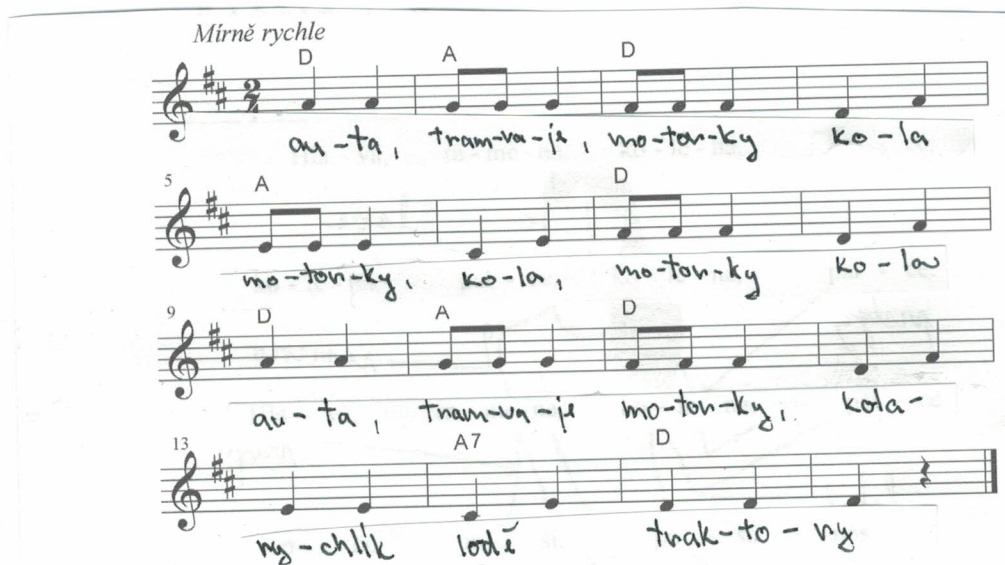 Mírně rychle
D A D
2 4
au-ta, tram-va-je, mo-tor-ky ko-la
5
A D
mo-tor-ky, ko-la, mo-tor-ky ko-la
9
D A D
au-ta, tram-va-je mo-tor-ky, kola-
13
A7 D
ry-chlík lodě trak-to-ry